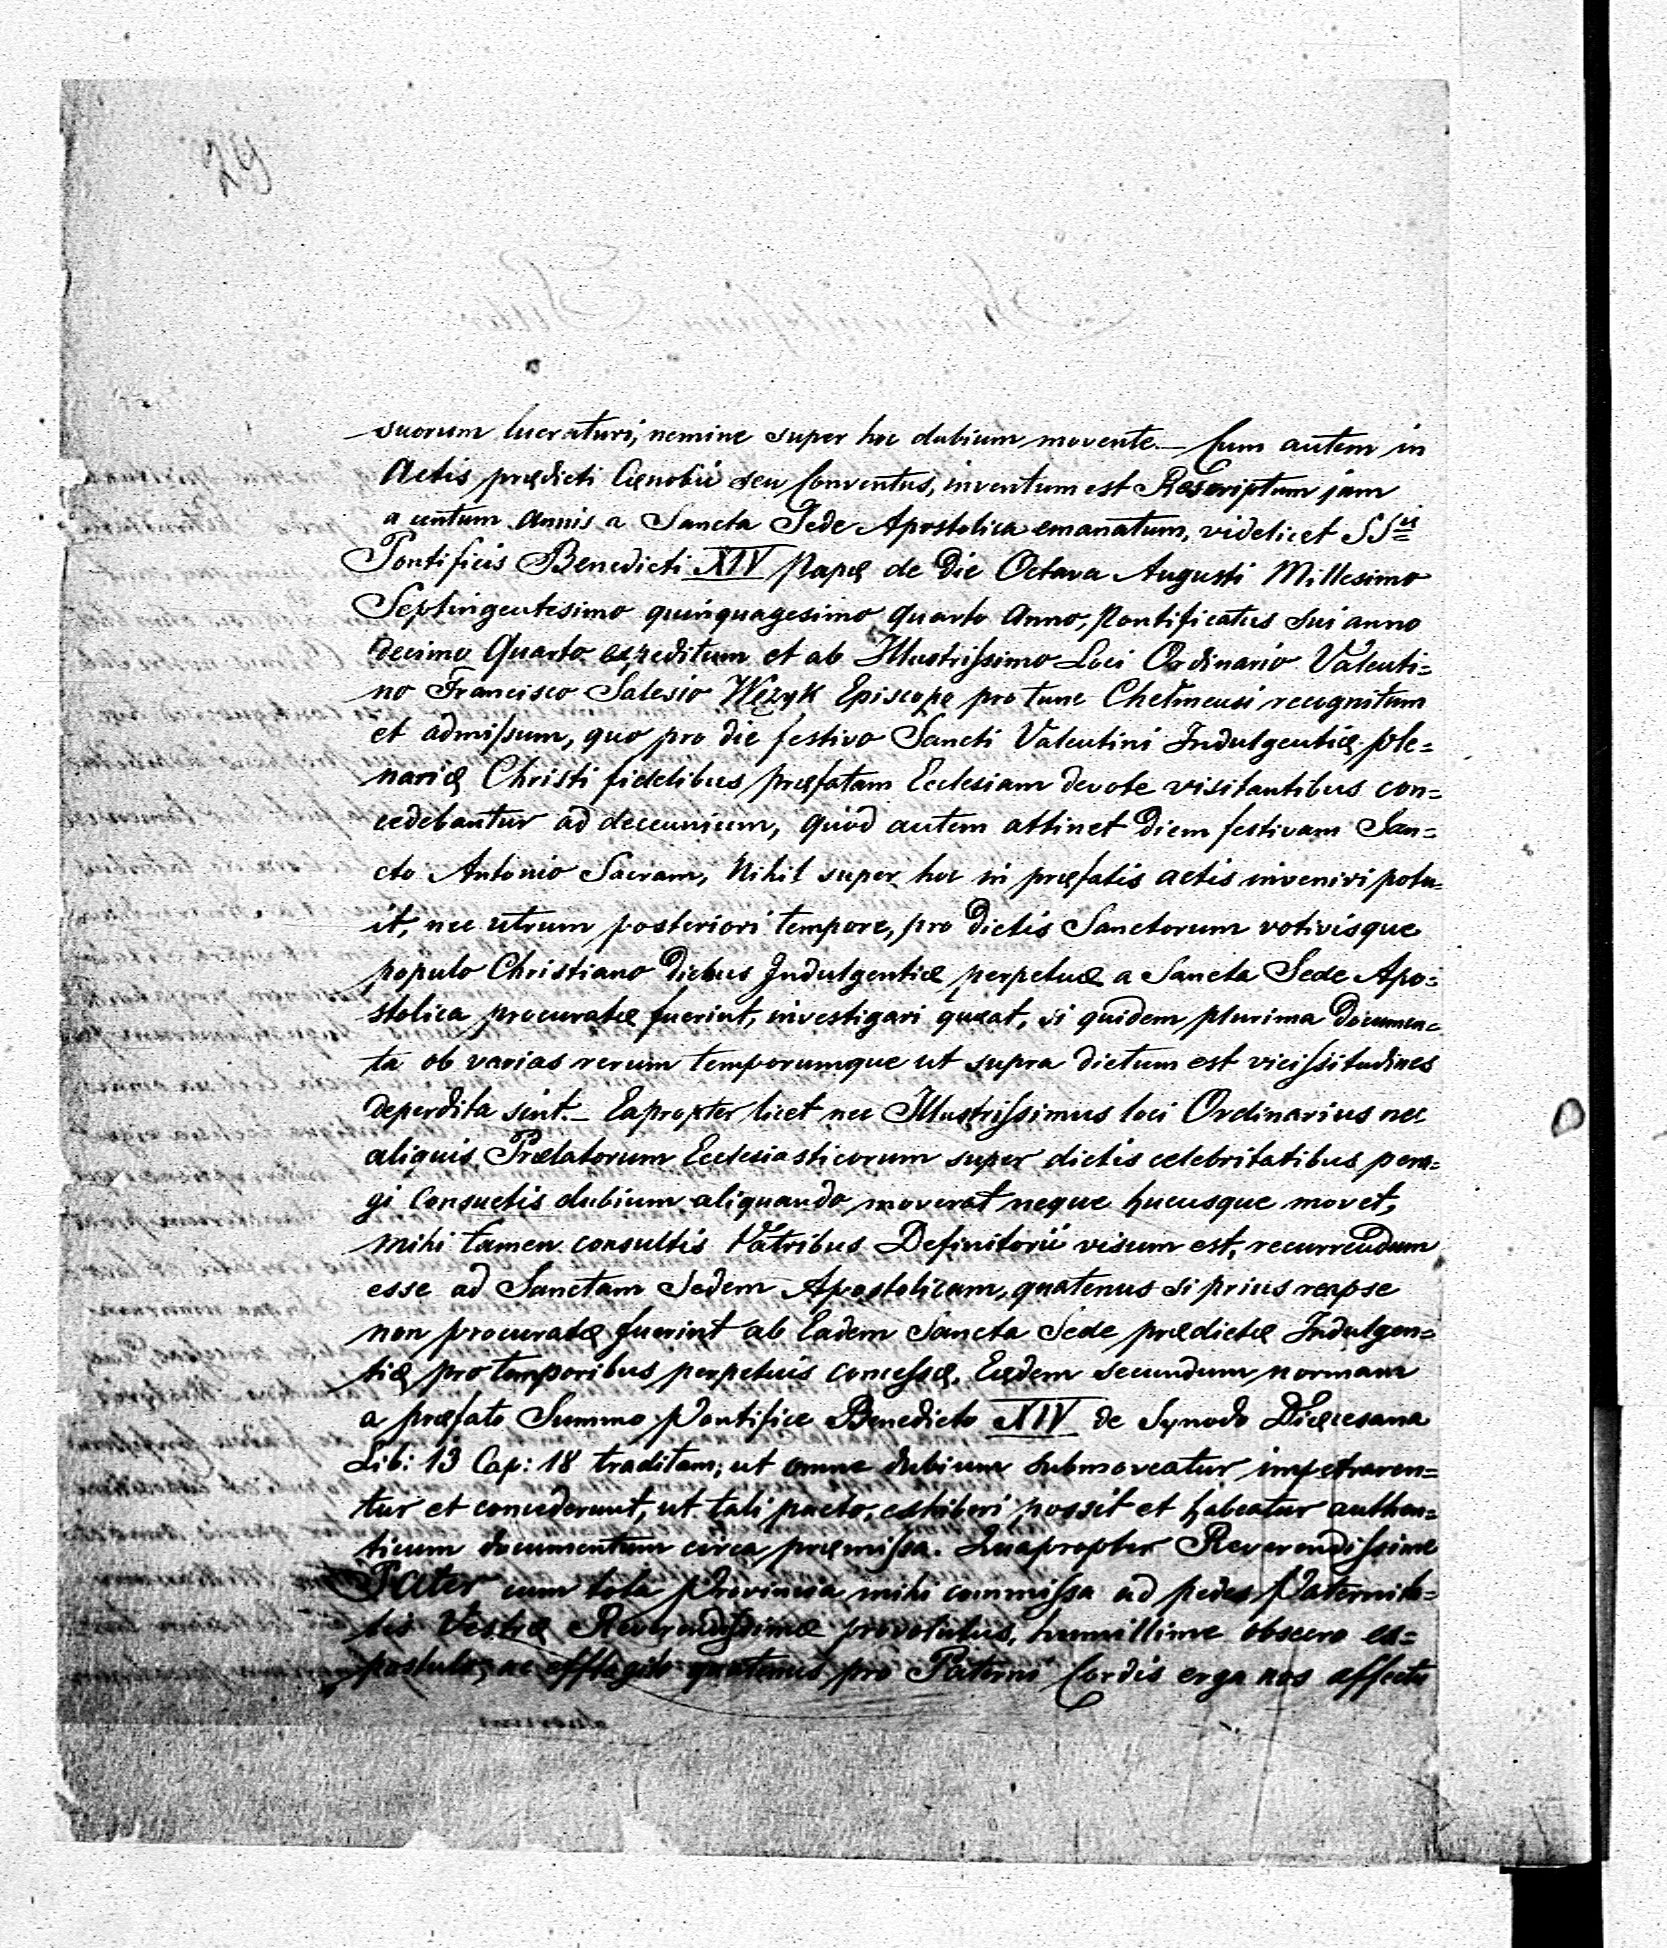 29
suorum lucraturi, nemine super hoc dubium movente._ Cum autem in
Actis prædicti Cænobii seu Conventus, inventum est Rescriptum jam
a centum annis a Sancta Sede Apostolica emanatum, videlicet SSii
Pontificis Benedicti XIV Papæ de Die Octava Augusti Millesimo
Septingentesimo quinquagesimo quarto Anno, Pontificatus Sui anno
decimo Quarto expeditum et ab Illustrissimo Loci Ordinario Valenti=
no Francisco Salesio Wężyk Episcopo pro tunc Chelmensi recognitum
et admissum, quo pro die festivo Sancti Valentini Indulgentiæ ple=
nariæ Christi fidelibus præfatam Ecclesiam devote visitantibus con=
cedebantur ad decennium, quod autem attinet Diem festivam San=
cto Antonio Sacram, Nihil super hoc in præfatis actis inveniri potu=
it, nec utrum posteriori tempore, pro dictis Sanctorum votivisque
populo Christiano Diebus Indulgentiæ perpetuæ a Sancta Sede Apo=
stolica procuratæ fuerint, investigari queat, si quidem plurima Documen=
ta ob varias rerum temporumque ut supra dictum est vicissitudines
Deperdita sint_ Eapropter licet nec Illustrissimus loci Ordinarius nec
aliquis Prælatorum Ecclesiasticorum super dictis celebritatibus pera=
gi Consuetis dubium aliquando moverat neque hucusque movet,
Mihi tamen consultis Patribus Definitorii visum est, recurrendum
esse ad Sanctam Sedem Apostolicam, quatenus si prius reapse
non procuratæ fuerint ab Eadem Sancta Sede prædictæ Indulgen=
tiæ pro temporibus perpetuis concessæ. Eædem secundum normam
a præfato Summo Pontifice Benedicto XIV de Synodo Diæcesana
Lib: 13 Cap: 18 traditam, ut omne dubium submoveatur impetraren=
tur et concederent, ut tali pacto, exhiberi possit et habeatur authen=
ticum documentum circa præmissa. Quapropter Reverendissime
Pater cum tota Provincia mihi commissa ad pedes Paternita=
tis Vestræ Reverendissimæ provolutus, humillime obsecro ex=
postulo, ac efflagito quatenus pro Paterni Cordis erga nos affectu